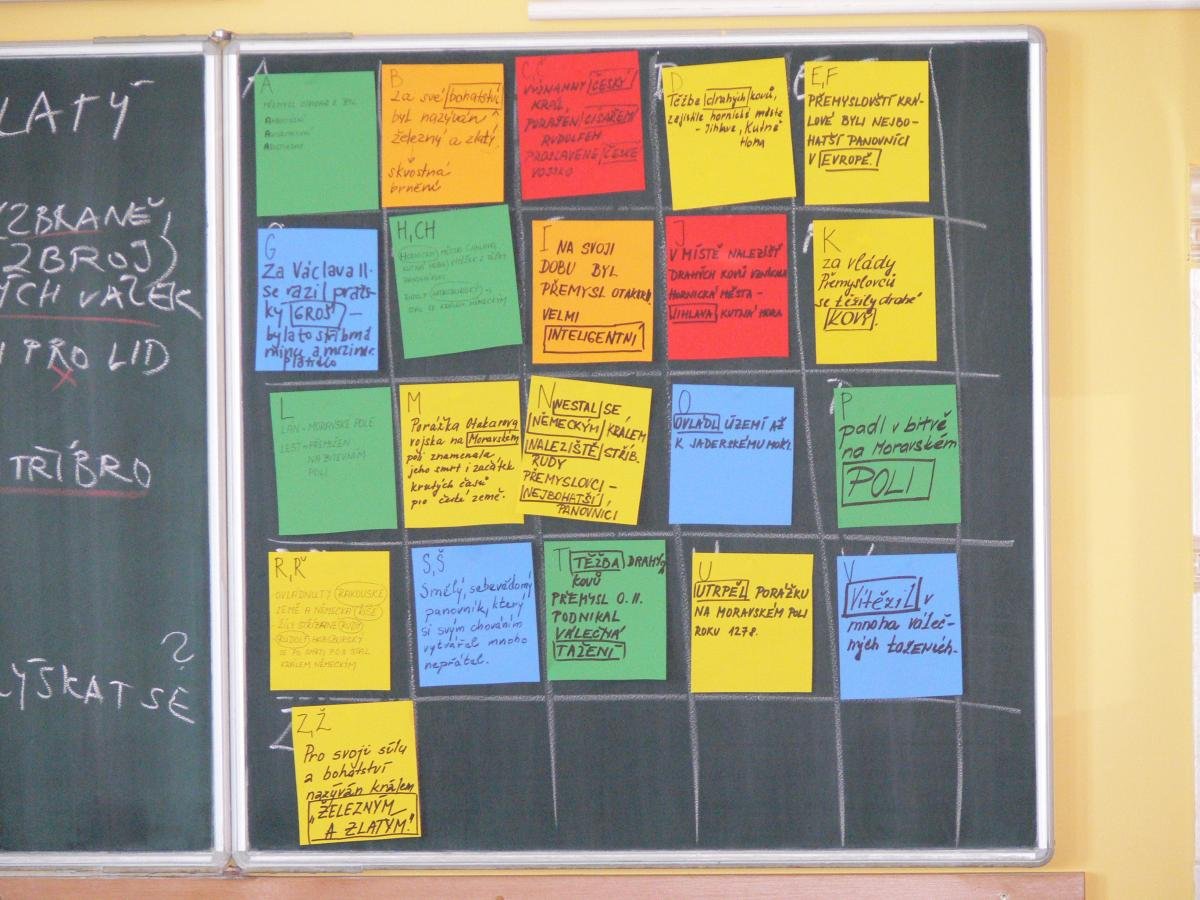 LATÝ
ZBRANĚ,
ZBROJ)
ÝCH VÁLEK
I PRO LID
TŘÍBRO
?
ÝSKAT SE
A
B
Za své bohatství
byl nazýván
železný a zlatý
skvostná
brnění
C,Č
VÝZNAMNÝ ČESKÝ
KRÁL,
PORAŽEN CÍSAŘEM
RUDOLFEM
PROSLAVENÉ ČESKÉ
VOJSKO
D
Těžba drahých kovů,
zajistila hornická města
- Jihlava, Kutná
Hora
E,F
PŘEMYSLOVŠTÍ KRÁ-
LOVÉ BYLI NEJBO-
HATŠÍ PANOVNÍCI
V EVROPĚ.
G
Za Václava II.
se razil praž-
ský GROŠ -
byla to stříbrná
mince a mezinár.
platidlo
H,CH
I
NA SVOJI
DOBU BYL
PŘEMYSL OTAKAR II.
VELMI
INTELIGENTNÍ
J
V MÍSTĚ NALEZIŠŤ
DRAHÝCH KOVŮ VZNIKLA
HORNICKÁ MĚSTA -
JIHLAVA, KUTNÁ HORA
K
za vlády
Přemyslovců
se těžily drahé
KOVY.
L
LÁN - MORAVSKÉ POLE
LEST - PŘEMOŽEN
NA BITEVNÍM
POLI
M
Porážka Otakarova
vojska na Moravském
poli znamenala
jeho smrt i začátek
krutých časů
pro české země.
N
NESTAL SE
NĚMECKÝM KRÁLEM
NALEZIŠTĚ STŘÍB.
RUDY
PŘEMYSLOVCI -
NEJBOHATŠÍ
PANOVNÍCI
O
OVLÁDL ÚZEMÍ AŽ
K JADERSKÉMU MOŘI.
P
padl v bitvě
na Moravském
POLI
R,Ř
OVLÁDNUTY RAKOUSKÉ
ZEMĚ A NĚMECKÁ ŘÍŠE
ŽÍLY STŘÍBRNÉ RUDY
RUDOLF HABSBURSKÝ
SE STAL
KRÁLEM NĚMECKÝM
S,Š
Smělý, sebevědomý
panovník, který
si svým chováním
vytvářel mnoho
nepřátel.
T
TĚŽBA DRAHÝCH
KOVŮ
PŘEMYSL O. II.
PODNIKAL
VÁLEČNÁ
TAŽENÍ
U
UTRPĚL PORÁŽKU
NA MORAVSKÉM POLI
ROKU 1278.
V
Vítězil v
mnoha váleč-
ných taženích.
Z,Ž
Pro svoji sílu
a bohatství
nazýván králem
„ŽELEZNÝM
A ZLATÝM."